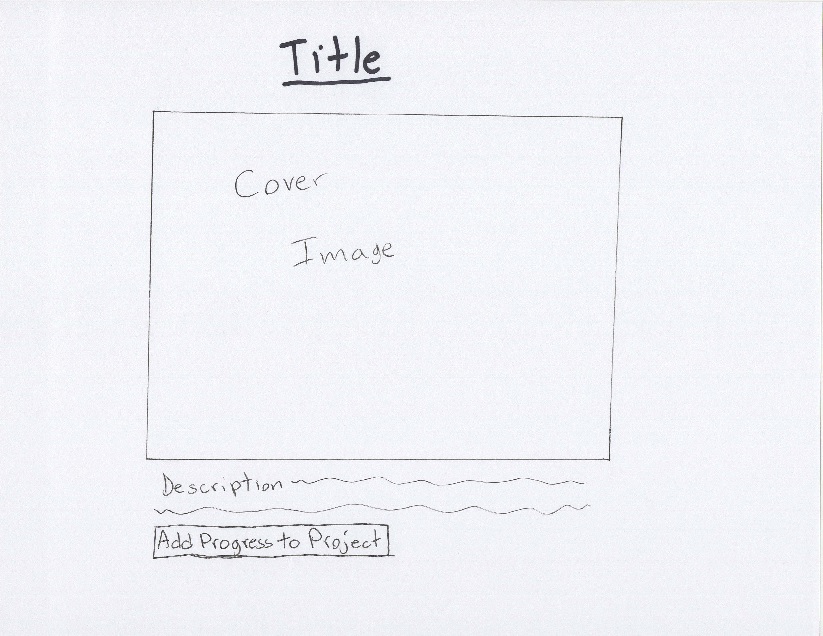 Title
Cover
Image
Description
Add Progress to Project